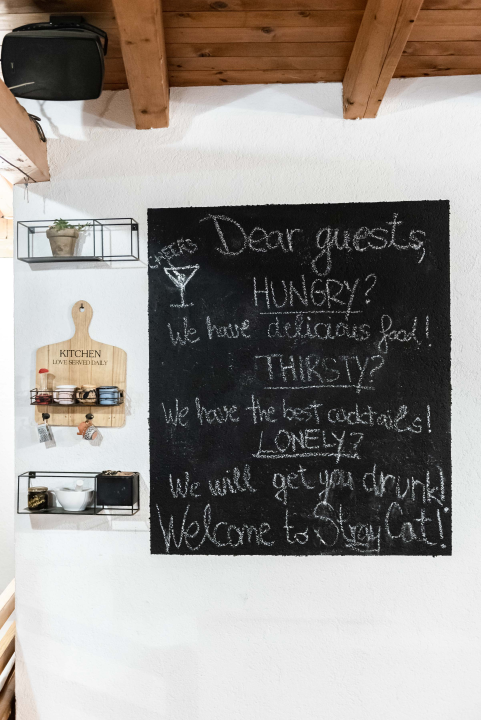 CHEERS
Dear guests,
HUNGRY?
We have delicious food!
THIRSTY?
We have the best cocktails!
LONELY?
We will get you drunk!
Welcome to Stray Cat!
KITCHEN
LOVE SERVED DAILY